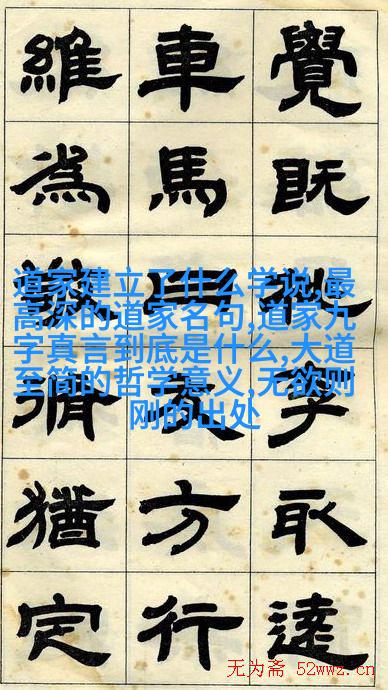 覺既取
車馬方行
維為猶定
道家建立了什么学说,最
高深的道家名句,道家九
字真言到底是什么,大道
至简的哲学意义,无欲则
刚的出处
无为斋 52wwz.cn